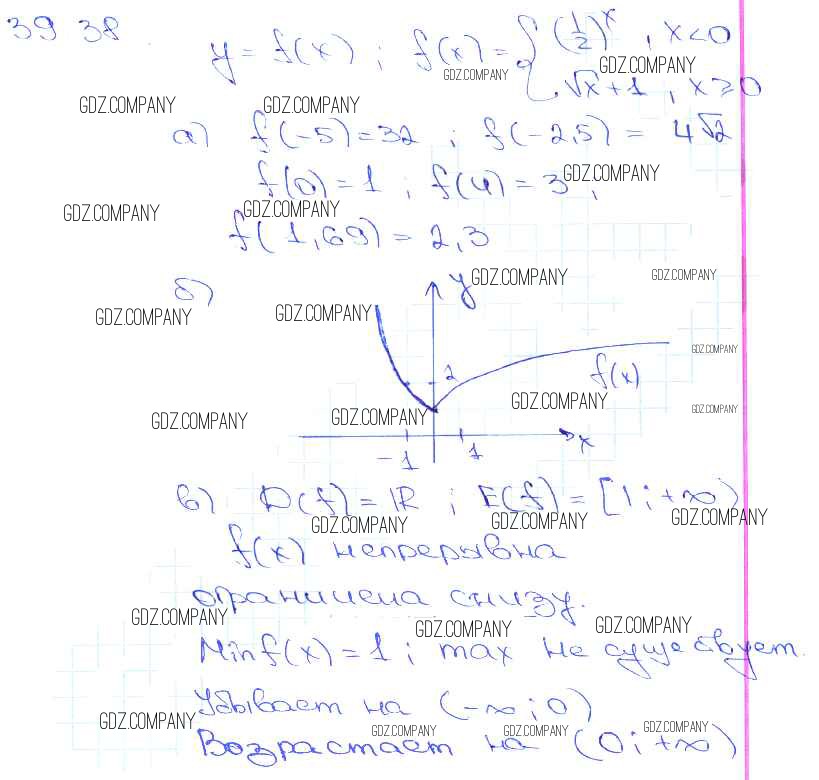 39 38.
y = f(x) ; f(x) = { (1/2)^x , x < 0
GDZ.COMPANY GDZ.COMPANY
√x + 1 , x ≥ 0
GDZ.COMPANY GDZ.COMPANY
а) f(-5) = 32 ; f(-2,5) = 4√2
f(0) = 1 ; f(4) = 3 ;
GDZ.COMPANY
GDZ.COMPANY GDZ.COMPANY
f(1,69) = 2,3
б)
y
GDZ.COMPANY GDZ.COMPANY
GDZ.COMPANY GDZ.COMPANY
GDZ.COMPANY
2 f(x)
GDZ.COMPANY GDZ.COMPANY
GDZ.COMPANY GDZ.COMPANY
-1 1 x
в) D(f) = R ; E(f) = [1 ; +∞)
GDZ.COMPANY GDZ.COMPANY GDZ.COMPANY
f(x) непрерывна
ограничена снизу.
GDZ.COMPANY GDZ.COMPANY GDZ.COMPANY
Min f(x) = 1 ; max не существует.
Убывает на (-∞ ; 0)
GDZ.COMPANY GDZ.COMPANY GDZ.COMPANY GDZ.COMPANY
Возрастает на (0 ; +∞)